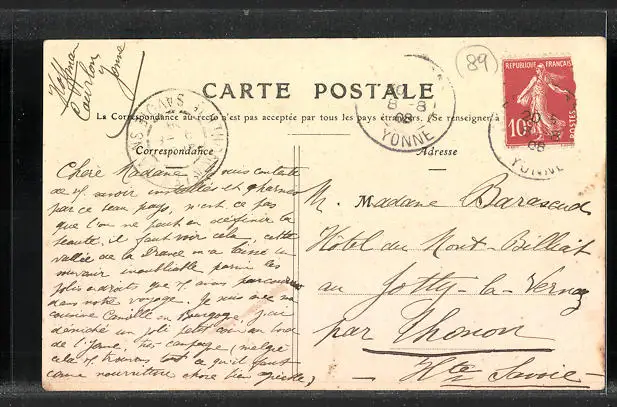 Hoffman
Courlon
Yonne
89
CARTE POSTALE
La Correspondance au recto n'est pas acceptée par tous les pays étrangers. (Se renseigner à
Correspondance
Adresse
REPUBLIQUE FRANÇAISE
10c
POSTES
8-8
08
YONNE
20
08
YONNE
Chère Madame, suis contente
de vs avoir installés et charmés
par ce beau pays, n'est ce pas
que l'on ne peut en définir la
beauté, il faut voir cela, cette
vallée de la Drance m'a laissé un
souvenir inoubliable parmi les
jolis endroits que ns avons parcourus
dans notre voyage. Je suis avec ma
cousine Camille en Bourgogne, j'ai
déniché un joli petit coin au bord
de l'Yonne, très campagne, malgré
cela ns trouvons tout ce qu'il faut
comme nourriture chose bien
M. Madame Barascud
Hôtel du Mont-Billiat
au Jotty-la-Vernaz
par Thonon
Hte Savoie